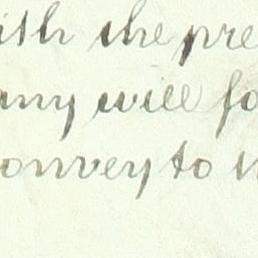 ith the pre
any will fo
onvey to